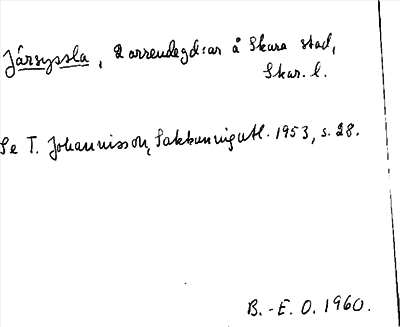 Järsyssla, 2 arrendegdar å Skara stad,
Skar. l.
Se T. Johannisson, Sakkunnigutl. 1953, s. 28.
B.-E. O. 1960.